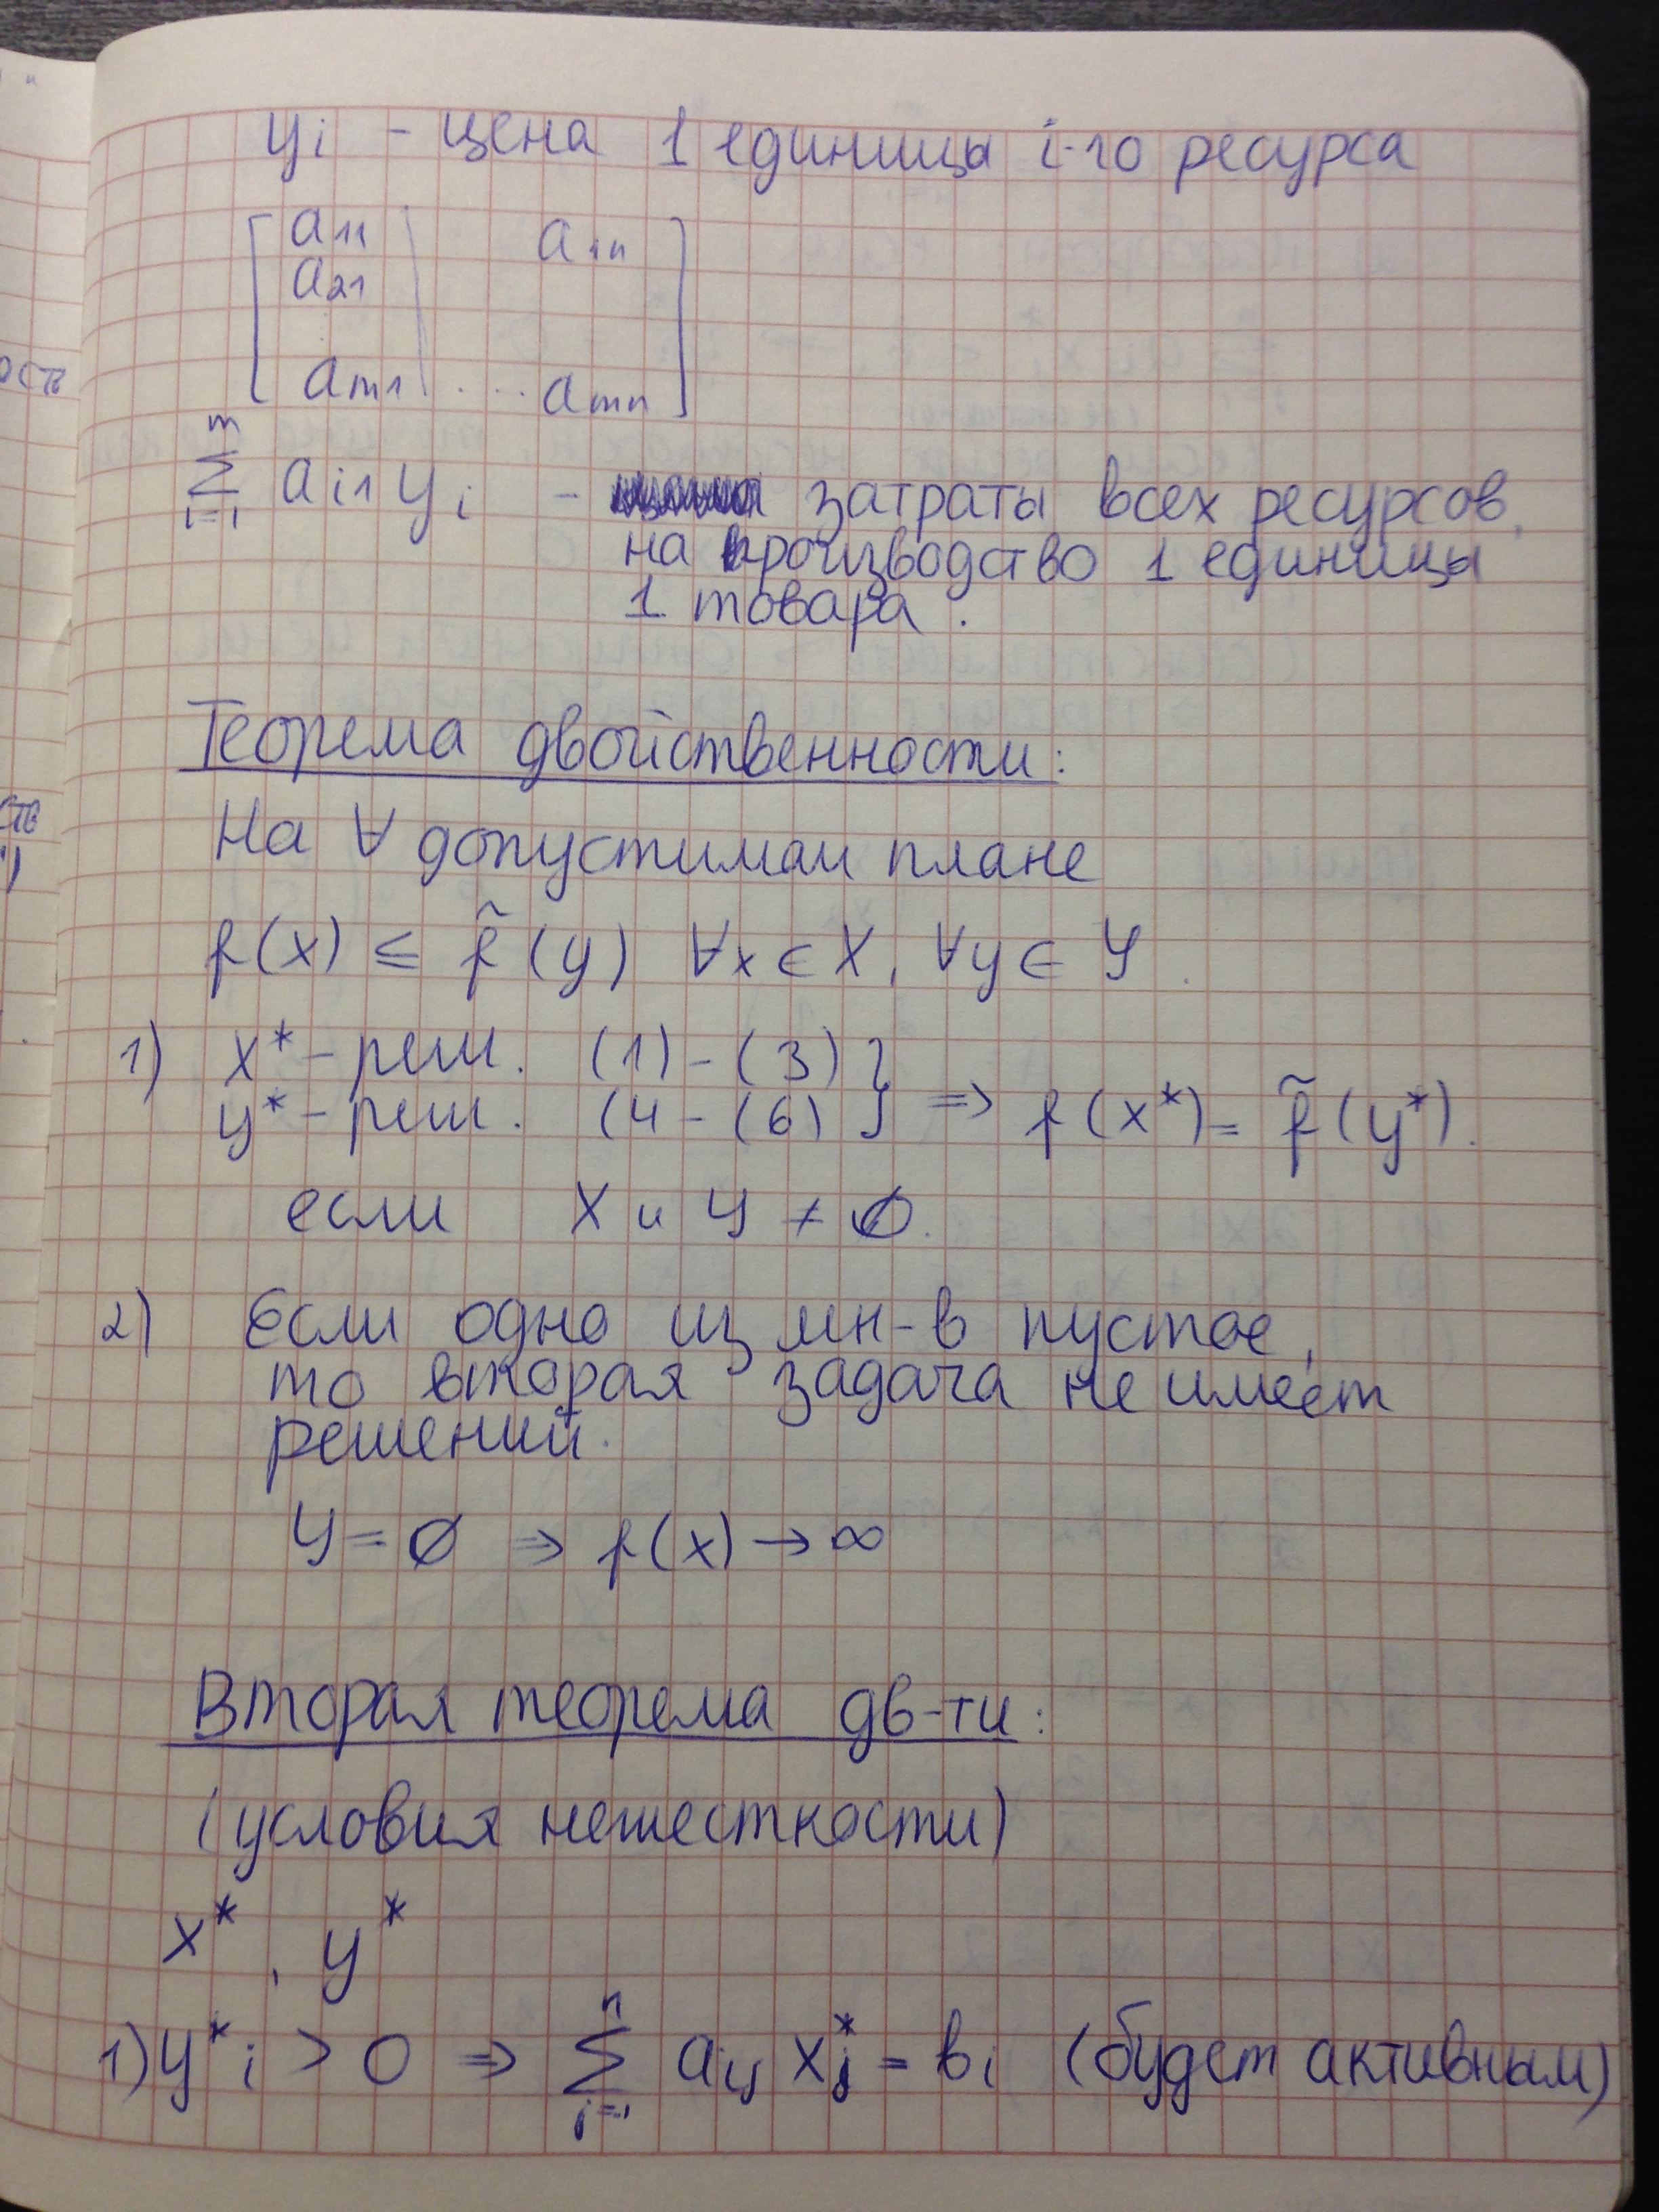 yᵢ - цена 1 единицы i-го ресурса
a₁₁ a₁ₙ
a₂₁
aₘ₁ .... aₘₙ
∑ᵢ₌₁ᵐ aᵢ₁ yᵢ - затраты всех ресурсов
на производство 1 единицы
1 товара.
Теорема двойственности:
На ∀ допустимом плане
f(x) ≤ f̃(y) ∀x∈X, ∀y∈Y.
1) x* - реш. (1) - (3) }
y* - реш. (4 - (6) } ⇒ f(x*) = f̃(y*).
если X и Y ≠ ∅.
2) Если одно из мн-в пустое,
то вторая задача не имеет
решений.
Y = ∅ ⇒ f(x) → ∞
Вторая теорема дв-ти:
(условия нежесткости)
x*, y*
1) y*ᵢ > 0 ⇒ ∑ⱼ₌₁ⁿ aᵢⱼ xⱼ* = bᵢ (будет активным)